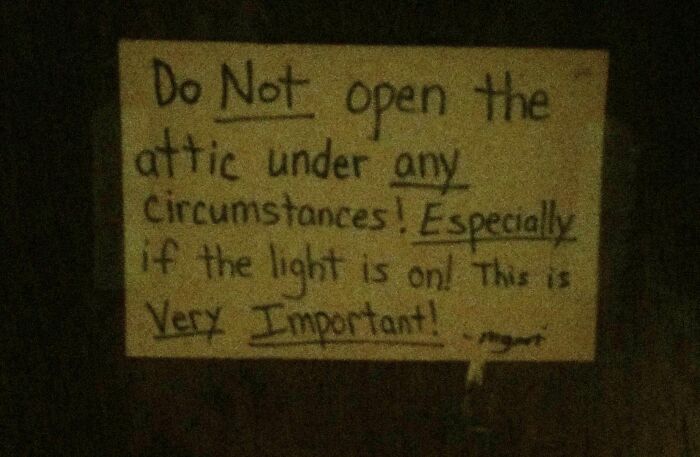 Do Not open the
attic under any
circumstances! Especially
if the light is on! This is
Very Important!